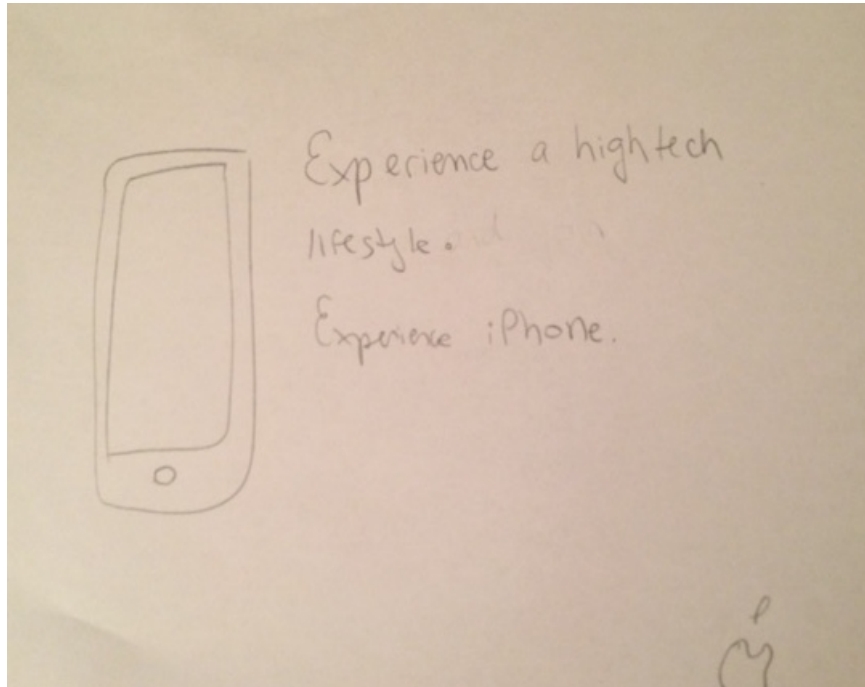 Experience a hightech
lifestyle.
Experience iPhone.